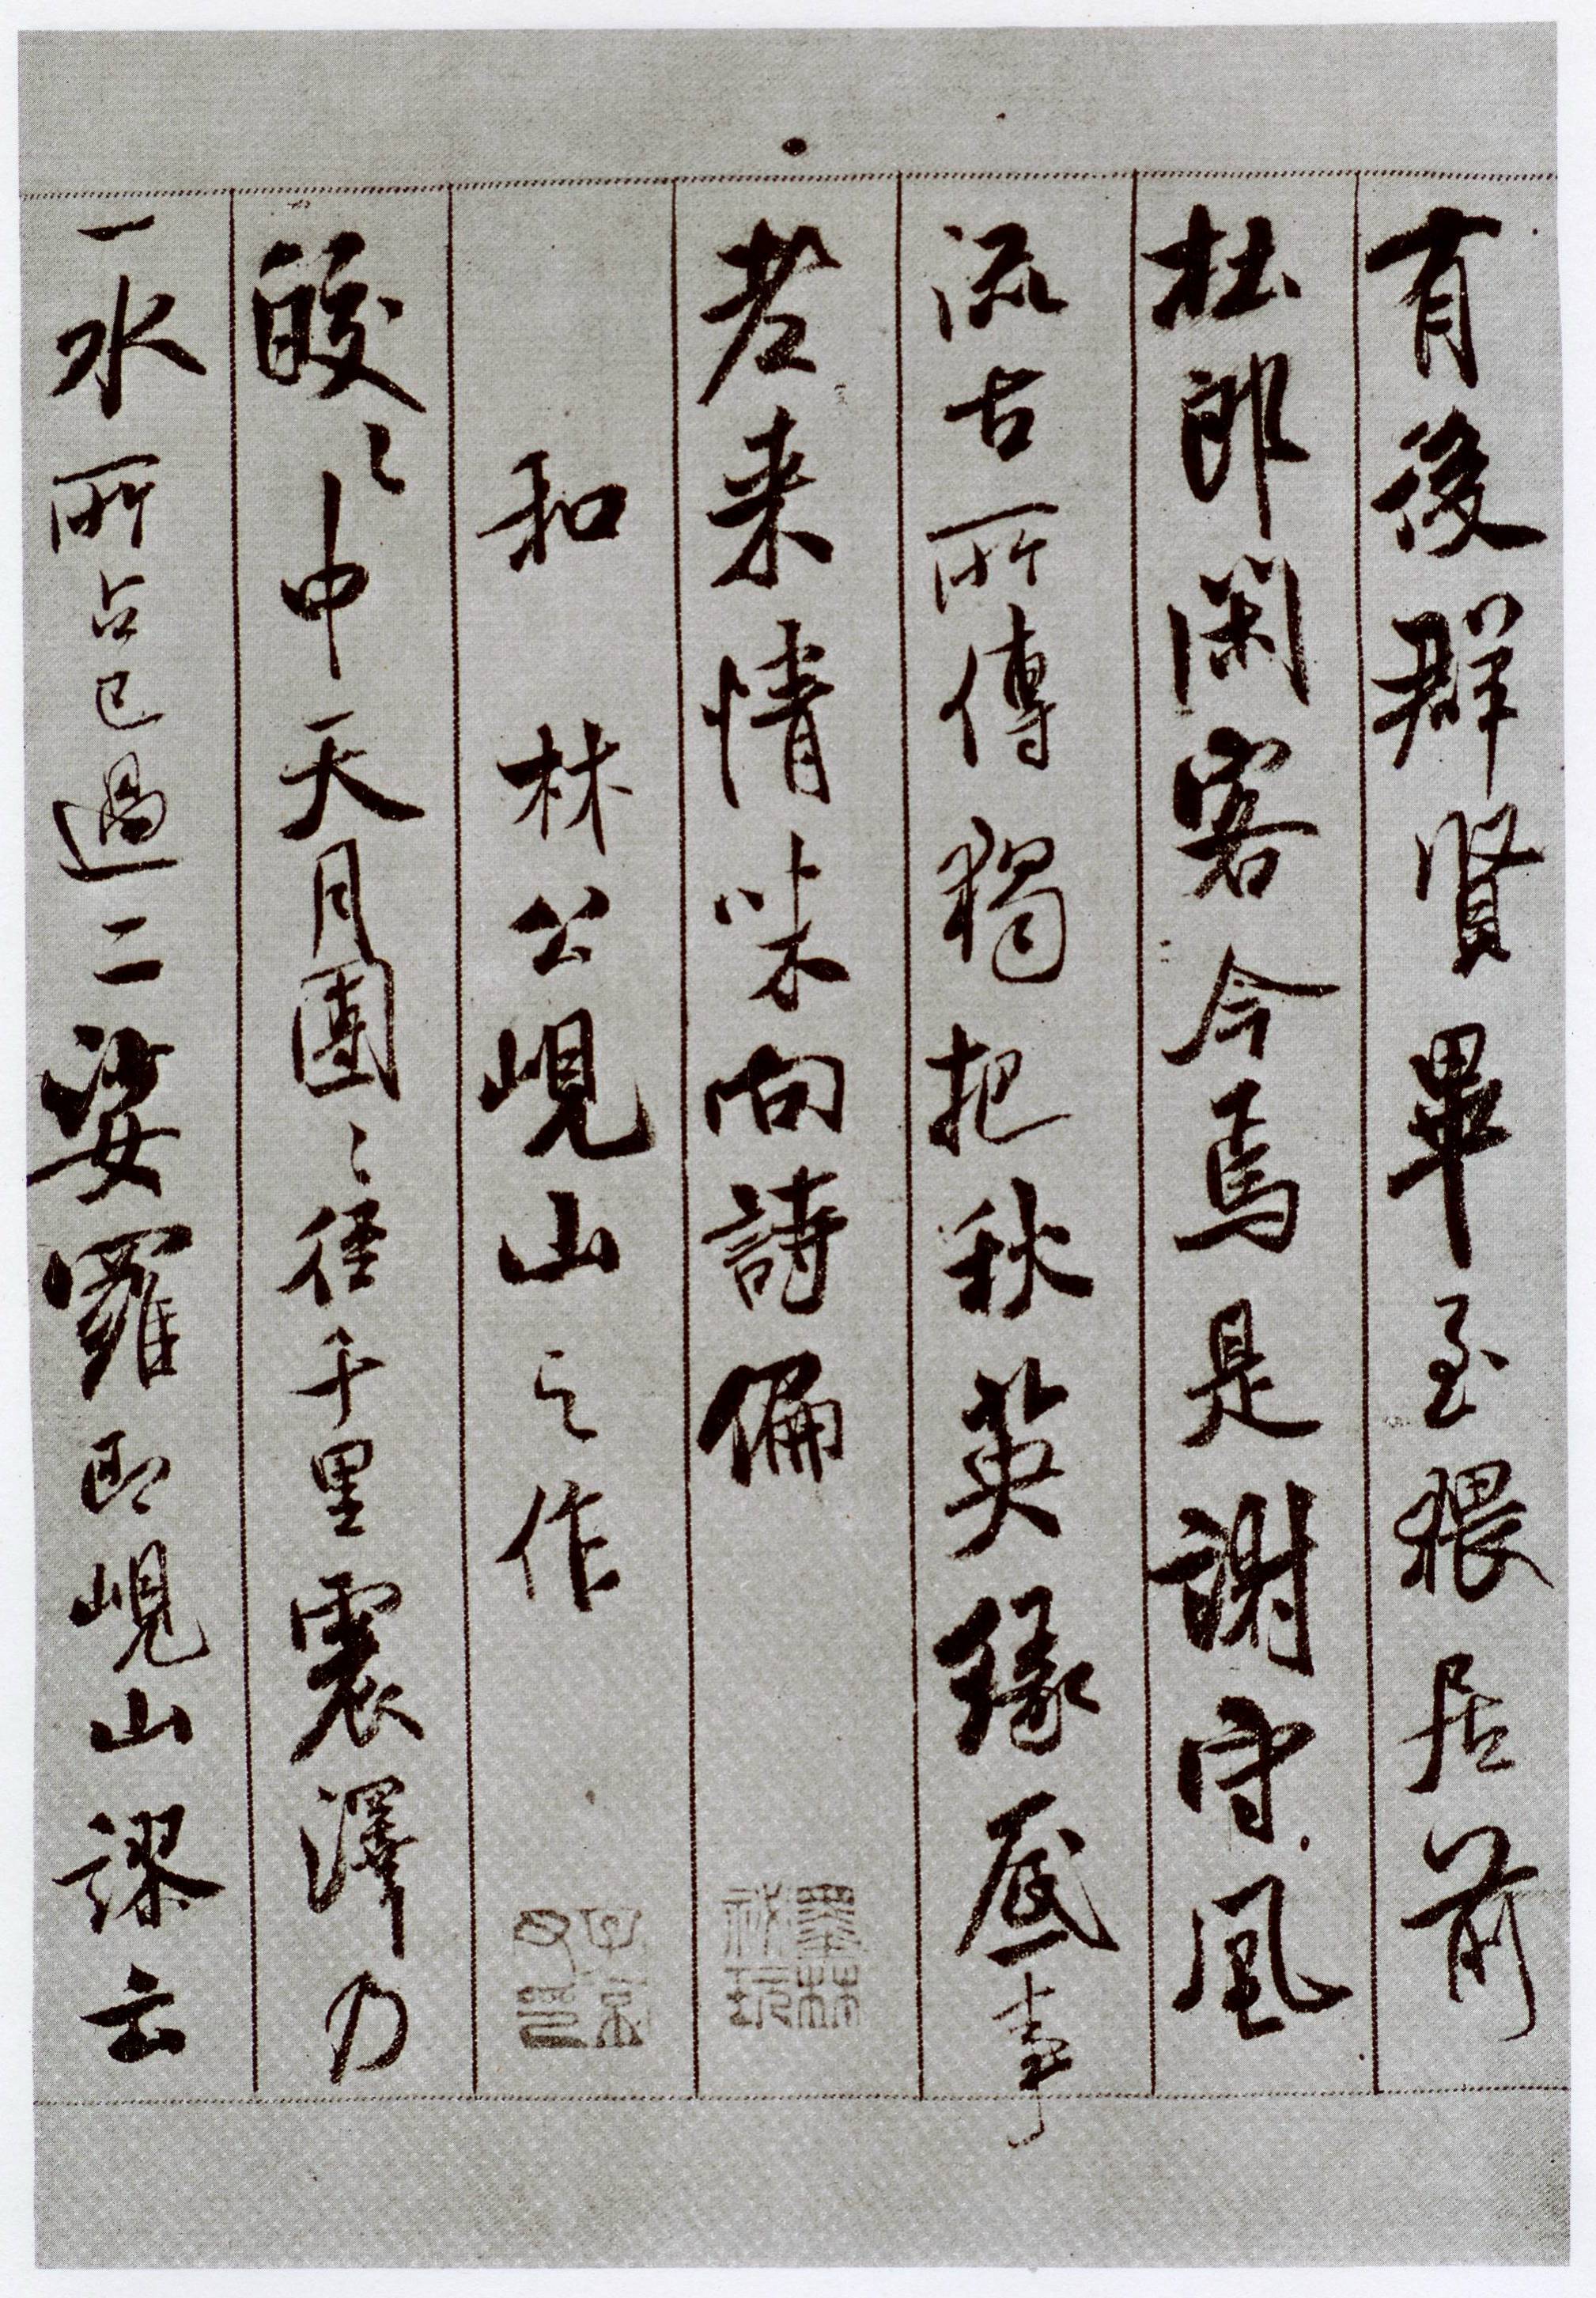 有後群賢畢至猥居前
杜郎閑客今焉是謝守風
流古所傳獨把秋英緣底事
老来情味向詩偏
和林公峴山之作
皎〻中天月團〻徑千里震澤乃
一水所占已過二娑羅即峴山謬云